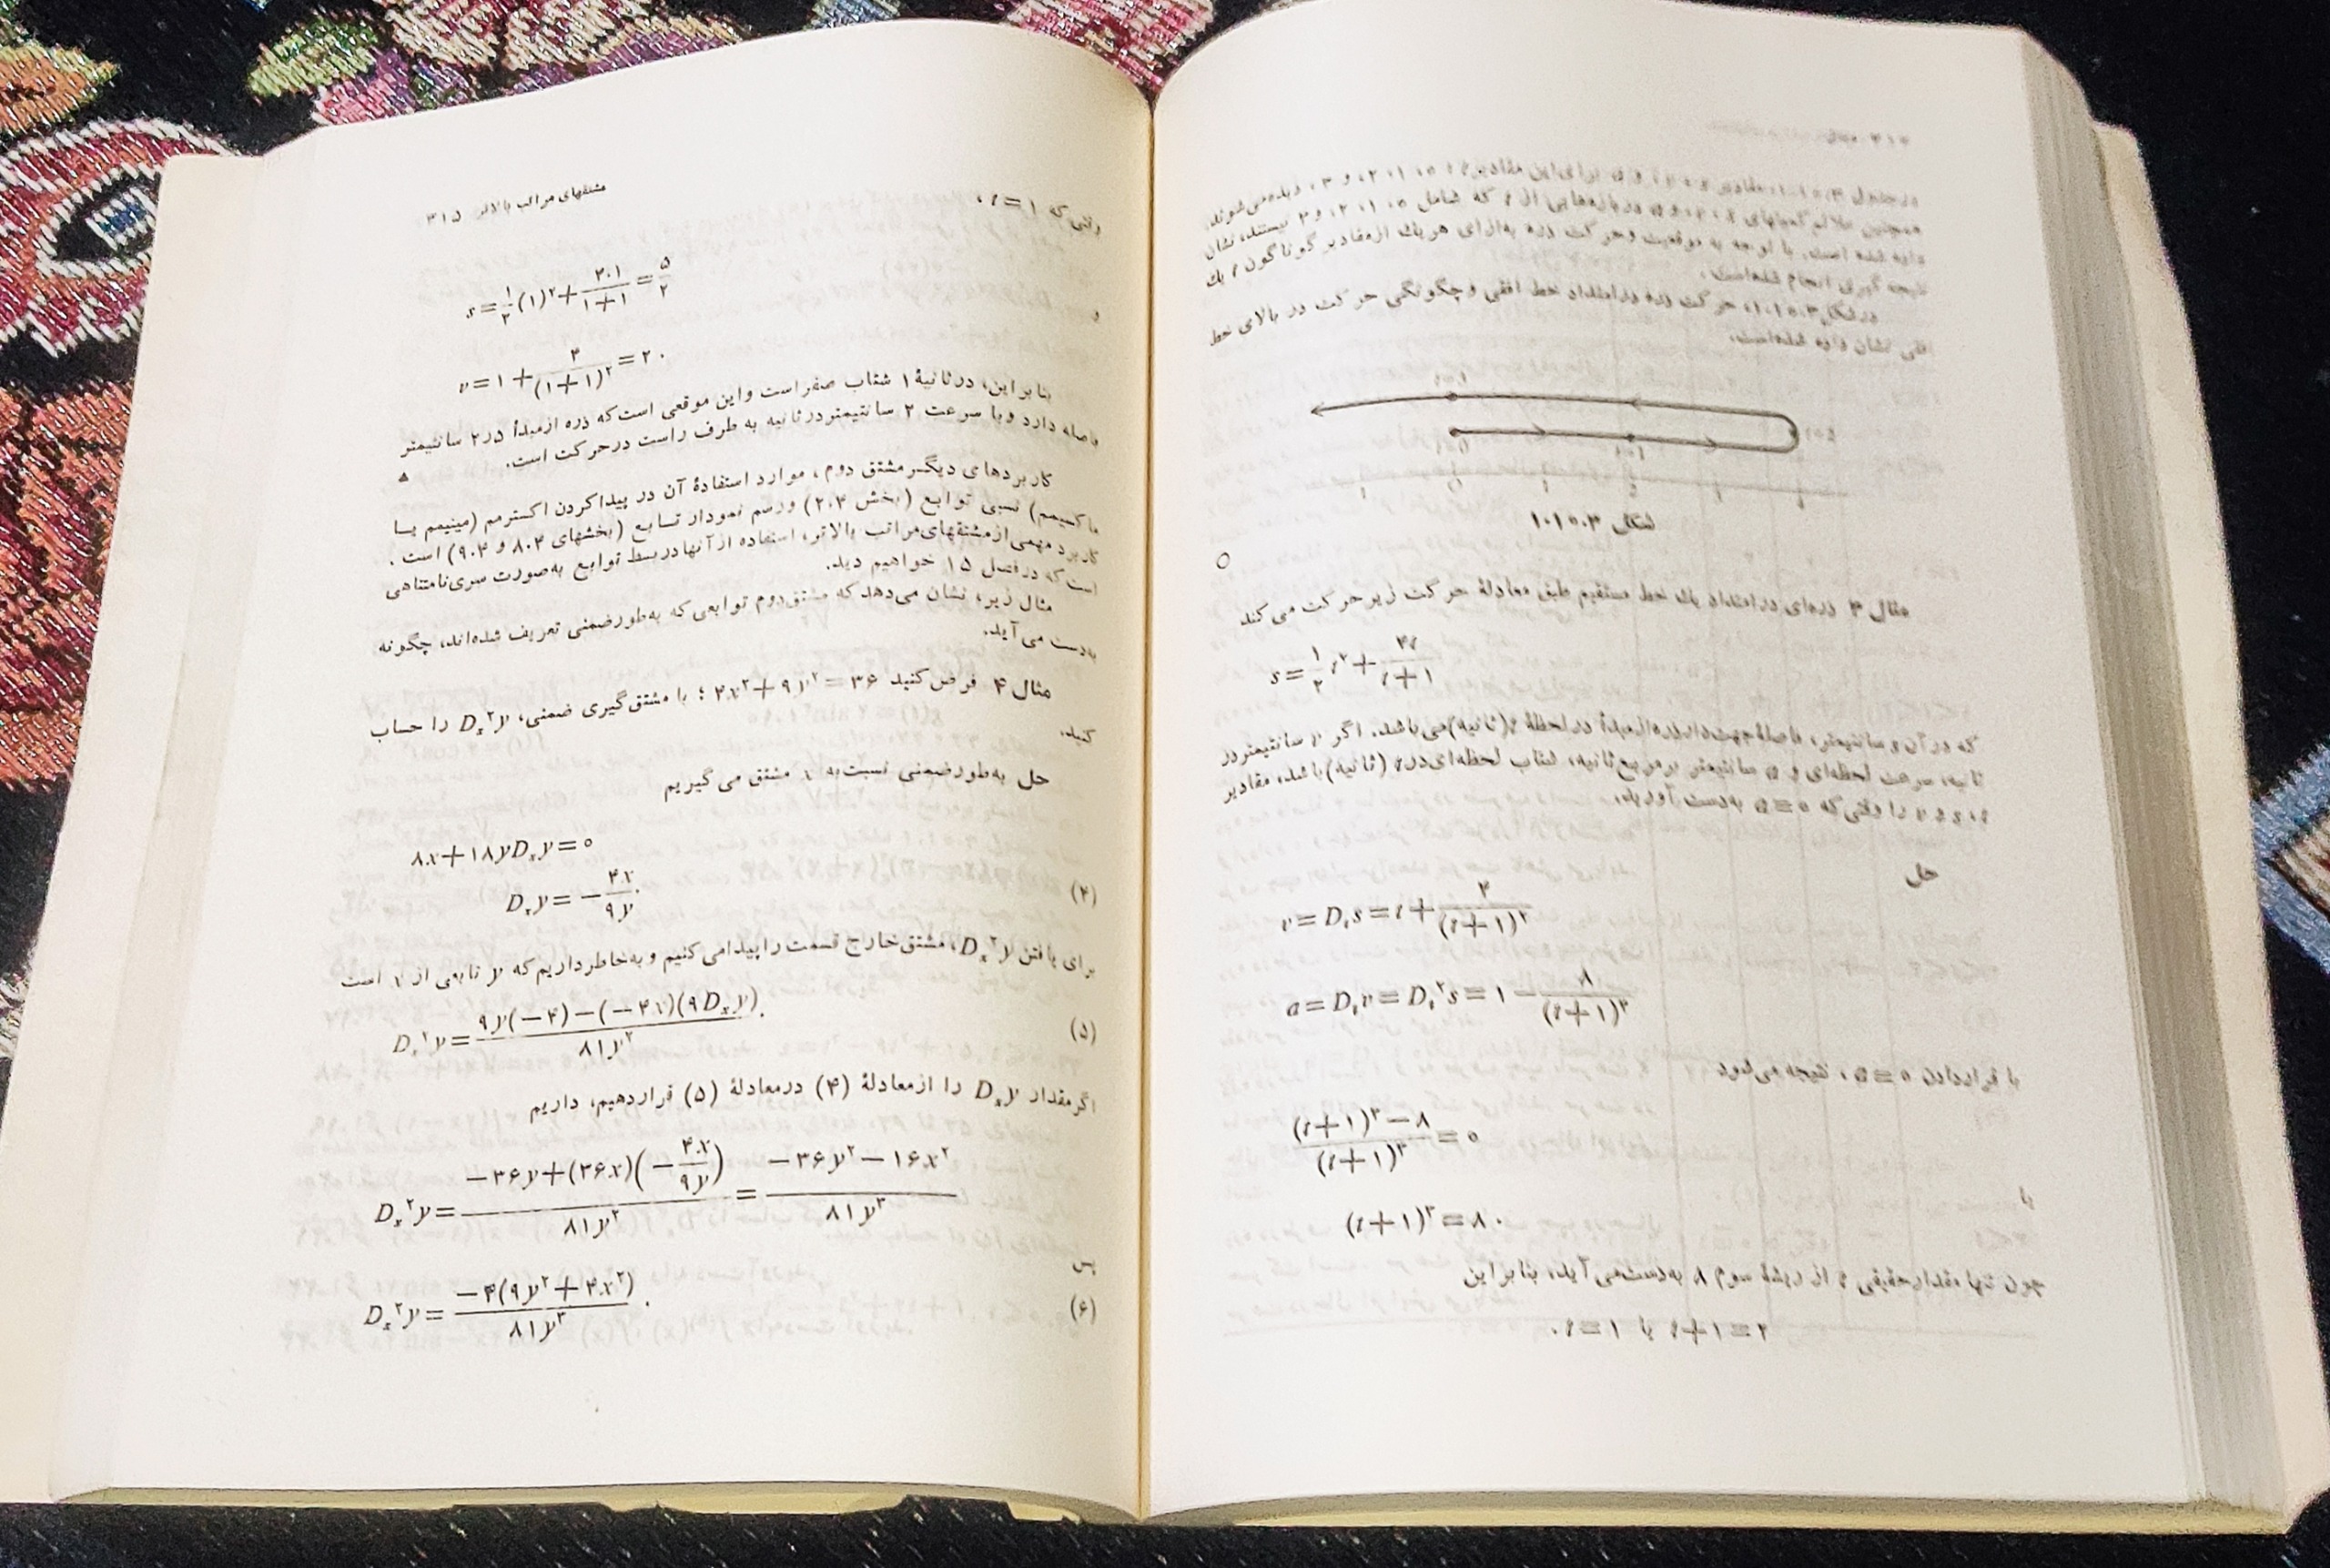 ۳۱۴
در جدول ۱.۱۰.۳، مقادیر s، v، و a برای این مقادیر t: ۰، ۱، ۲، و ۳، دیده می‌شوند.
همچنین علائم کمیتهای s، v، و a در بازه‌هایی از t که شامل ۰، ۱، ۲، و ۳ نیستند، نشان
داده شده است. با توجه به موقعیت و حرکت ذره به‌ازای هر یك از مقادیر گوناگون t یك
نتیجه گیری انجام شده‌است.
در شکل ۱.۱۰.۳، حرکت ذره در امتداد خط افقی و چگونگی حرکت در بالای خط
افقی نشان داده شده‌است.
شکل ۱.۱۰.۳
مثال ۳ ذره‌ای در امتداد یك خط مستقیم طبق معادلهٔ حرکت زیر حرکت می‌کند
s = ۱/۲ t² + ۴t/(t+۱)
که در آن s سانتیمتر، فاصلهٔ جهت‌دار ذره از مبدأ در لحظهٔ t (ثانیه) می‌باشد. اگر v سانتیمتر در
ثانیه، سرعت لحظه‌ای و a سانتیمتر بر مربع ثانیه، شتاب لحظه‌ای در t (ثانیه) باشد، مقادیر
t، s، v را وقتی که a = ۰ به‌دست آورید.
حل
v = Dₜs = t + ۴/(t+۱)²
a = Dₜv = Dₜ²s = ۱ − ۸/(t+۱)³
با قراردادن a = ۰، نتیجه می‌شود
((t+۱)³ − ۸)/(t+۱)³ = ۰
یا
(t+۱)³ = ۸.
چون تنها مقدار حقیقی t از ریشهٔ سوم ۸ به‌دست می‌آید، بنابراین
t+۱ = ۲ یا t = ۱.
مشتقهای مراتب بالاتر ۳۱۵
وقتی که t = ۱،
s = ۱/۲ (۱)² + ۴·۱/(۱+۱) = ۵/۲
و
v = ۱ + ۴/(۱+۱)² = ۲.
بنابراین، در ثانیهٔ ۱ شتاب صفر است و این موقعی است که ذره از مبدأ ۲٫۵ سانتیمتر
فاصله دارد و با سرعت ۲ سانتیمتر در ثانیه به طرف راست در حرکت است.
کاربردهای دیگر مشتق دوم، موارد استفادهٔ آن در پیدا کردن اکسترمم (مینیمم یا
ماکسیمم) نسبی توابع (بخش ۲.۴) و رسم نمودار تابع (بخشهای ۸.۴ و ۹.۴) است.
کاربرد مهمی از مشتقهای مراتب بالاتر، استفاده از آنها در بسط توابع به‌صورت سری نامتناهی
است که در فصل ۱۵ خواهیم دید.
مثال زیر، نشان می‌دهد که مشتق دوم توابعی که به‌طور ضمنی تعریف شده‌اند، چگونه
به‌دست می‌آید.
مثال ۴ فرض کنید ۴x² + ۹y² = ۳۶؛ با مشتق گیری ضمنی، Dₓ²y را حساب
کنید.
حل به‌طور ضمنی نسبت به x مشتق می گیریم
۸x + ۱۸yDₓy = ۰
(۴) Dₓy = −۴x/۹y.
برای یافتن Dₓ²y، مشتق خارج قسمت را پیدا می کنیم و به‌خاطر داریم که y تابعی از x است
(۵) Dₓ²y = (۹y(−۴) − (−۴x)(۹Dₓy))/۸۱y².
اگر مقدار Dₓy را از معادلهٔ (۴) در معادلهٔ (۵) قرار دهیم، داریم
Dₓ²y = (−۳۶y + (۳۶x)(−۴x/۹y))/۸۱y² = (−۳۶y² − ۱۶x²)/۸۱y³
پس
(۶) Dₓ²y = −۴(۹y² + ۴x²)/۸۱y³.